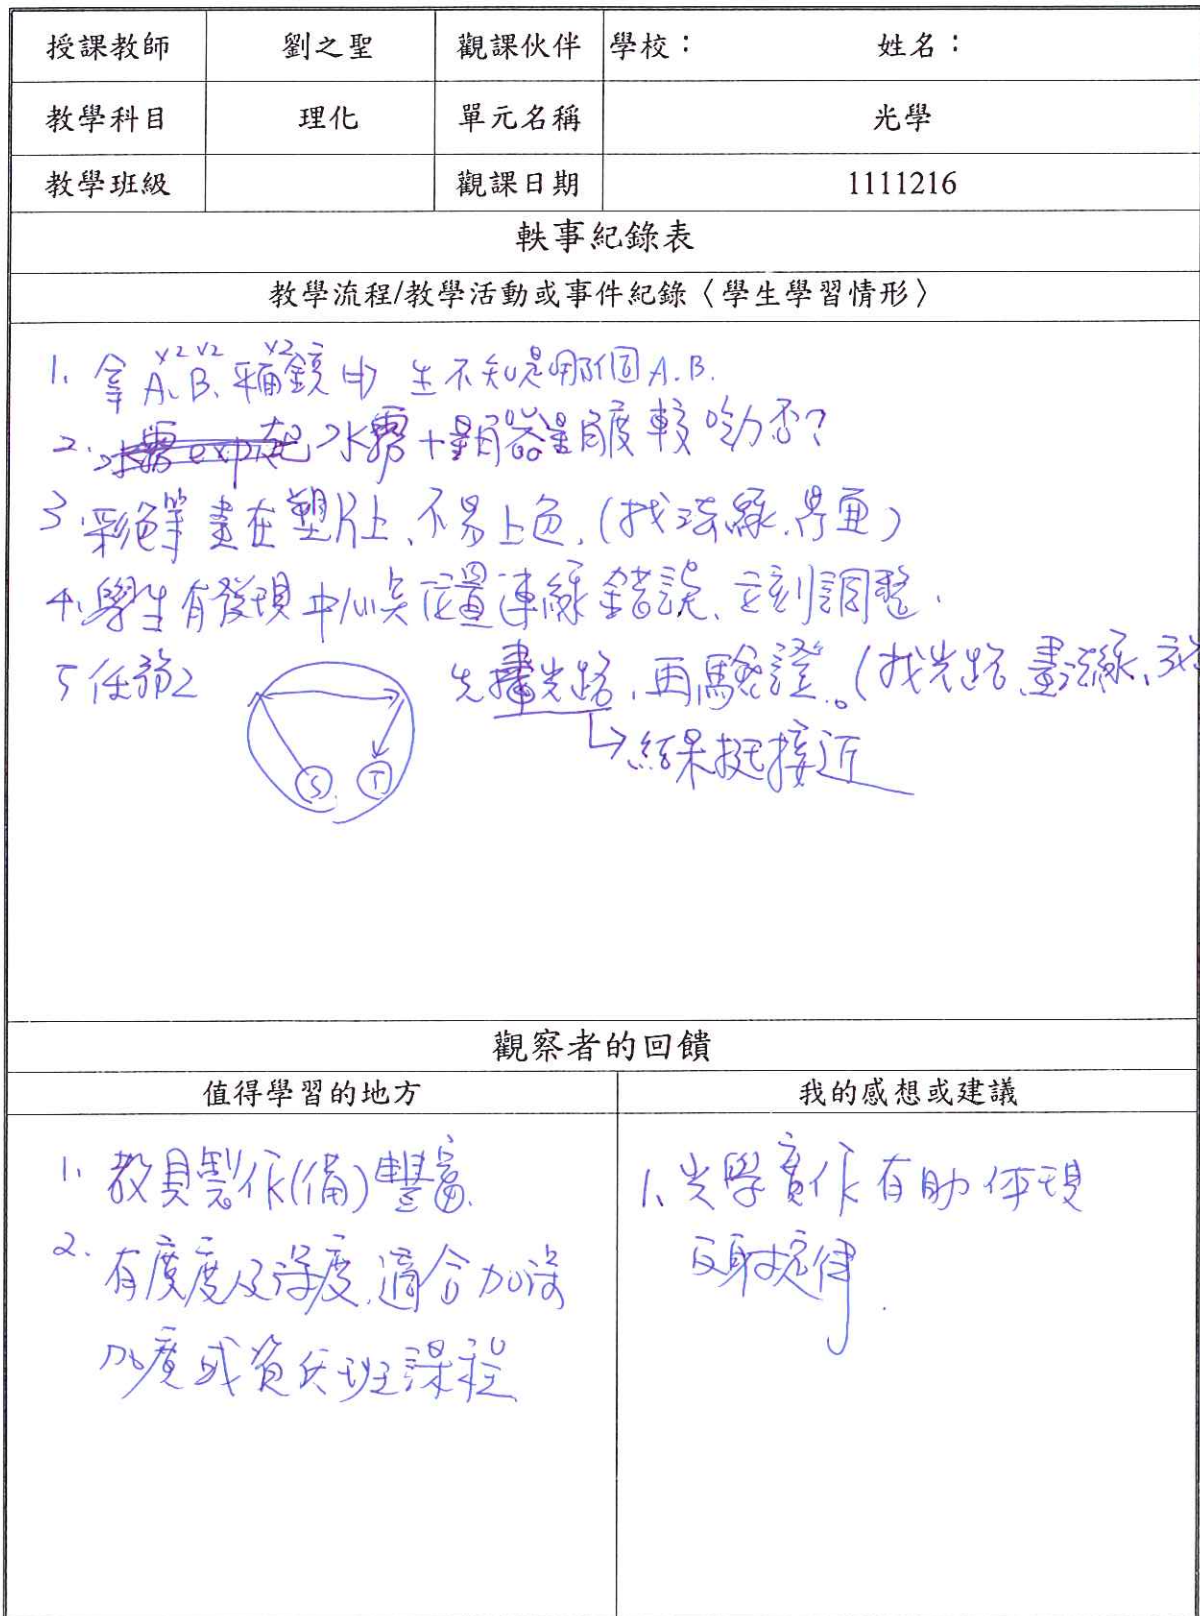 授課教師 劉之聖 觀課伙伴 學校： 姓名：
教學科目 理化 單元名稱 光學
教學班級 觀課日期 1111216
軼事紀錄表
教學流程/教學活動或事件紀錄〈學生學習情形〉
x2 x2 x2
1. 拿A、B、稜鏡 生不知是哪個A.B.
2. 水霧 exp 起 水霧+量角器量角度較吃力否?
3. 彩色筆畫在塑片上、不易上色.(找法線.界面)
4. 學生有發現中心點位置連線錯誤、立刻調整.
5 任務2 先畫光路,再驗證。(找光路、畫法線、
S T
↳結果挺接近
觀察者的回饋
值得學習的地方 我的感想或建議
1. 教具製作(備)豐富.
2. 有廣度及深度.適合加深
加廣或資優班課程
1. 光學實作有助体現
反射定律.